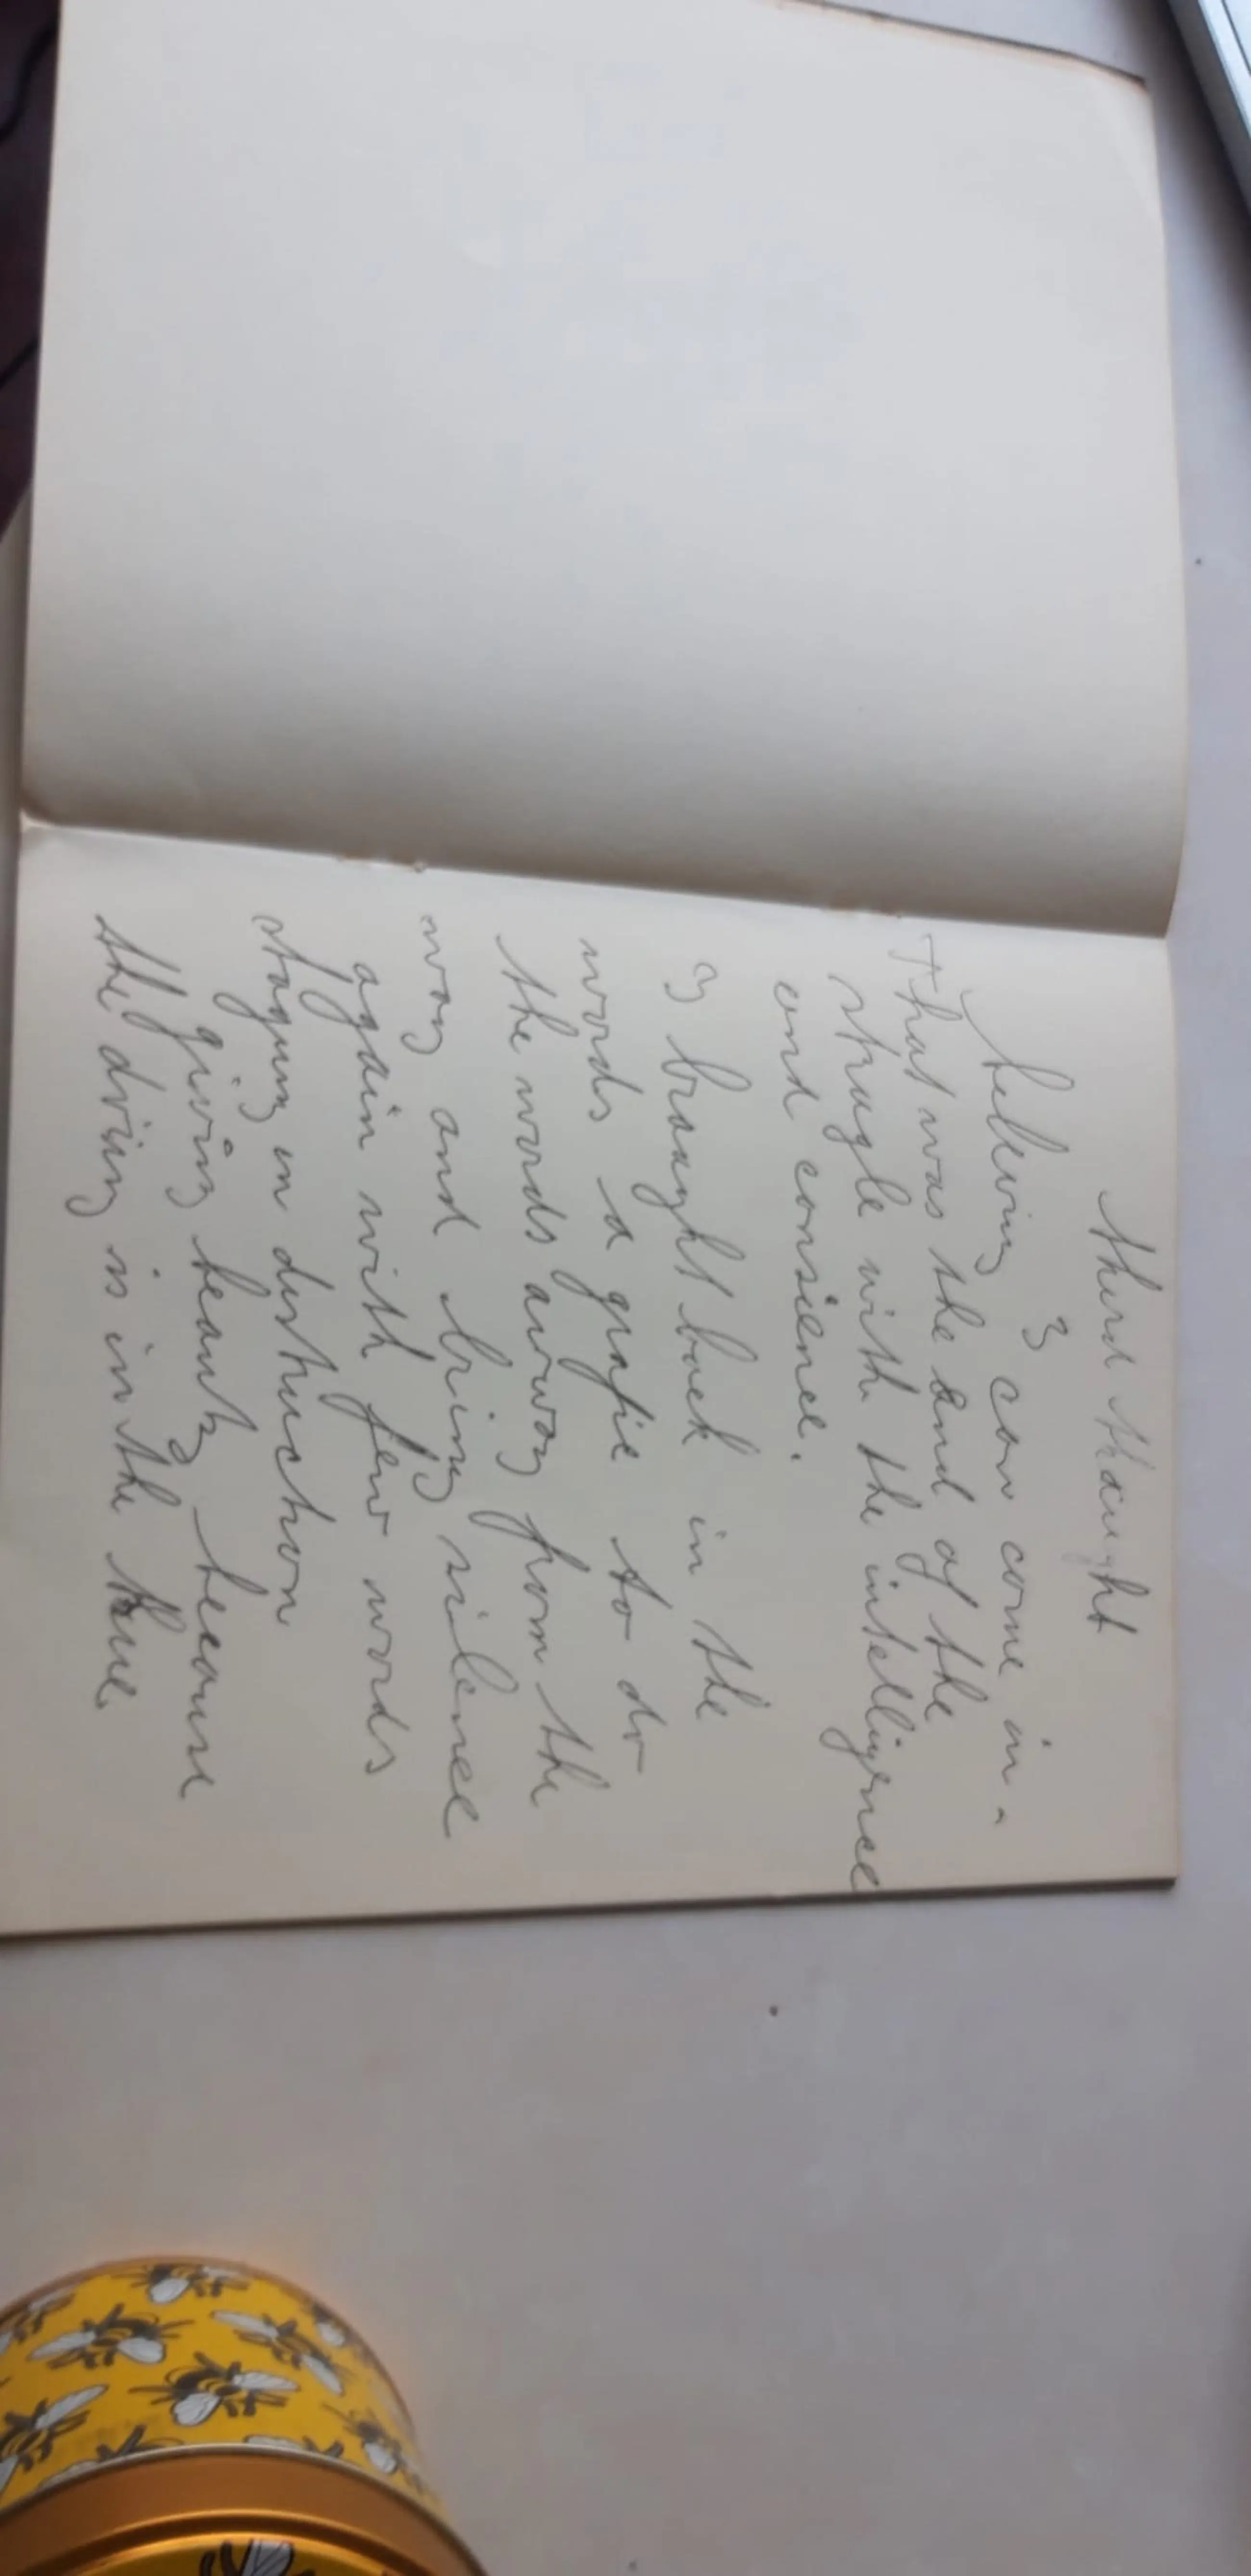 third thought
I can come in -
believing
That was the end of the
strugle with the intelligence
and consience.
I braught back in the
words a grafic to do
the words away from the
way and bring silence
again with few words
staying in distruction
giving beauty because
the dviny is in the true.